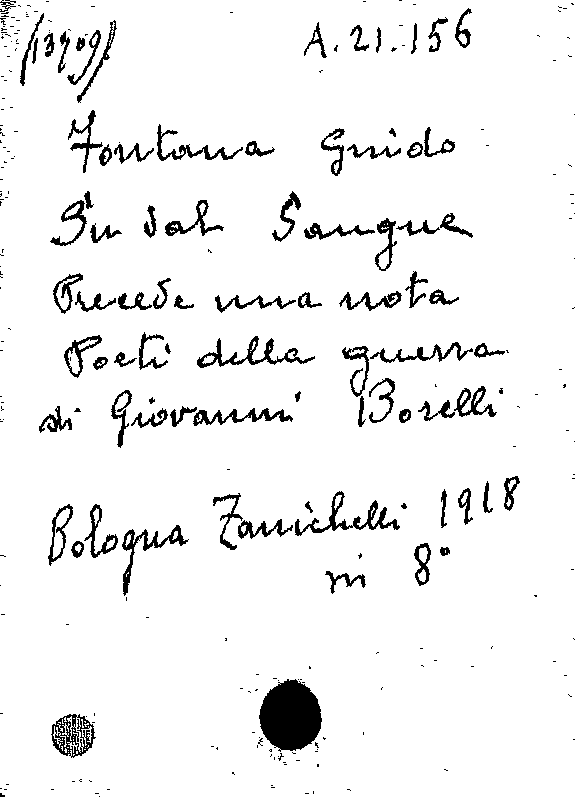 (13709)
A. 21. 156
Fontana Guido
Su dal Sangue
Precede una nota
Poeti della guerra
di Giovanni Borelli
Bologna Zanichelli 1918
in 8°